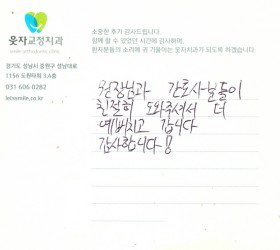 웃자교정치과
smile orthodontic clinic
경기도 성남시 중원구 성남대로
1156 도원타워 3,4층
031 606 0282
letssmile.co.kr
소중한 후기 감사드립니다.
함께 할 수 있었던 시간에 감사하며,
환자분들의 소리에 귀 기울이는 웃자치과가 되도록 하겠습니다.
원장님과 간호사님들이
친절히 도와주셔서 더
예뻐지고 갑니다
감사합니다!